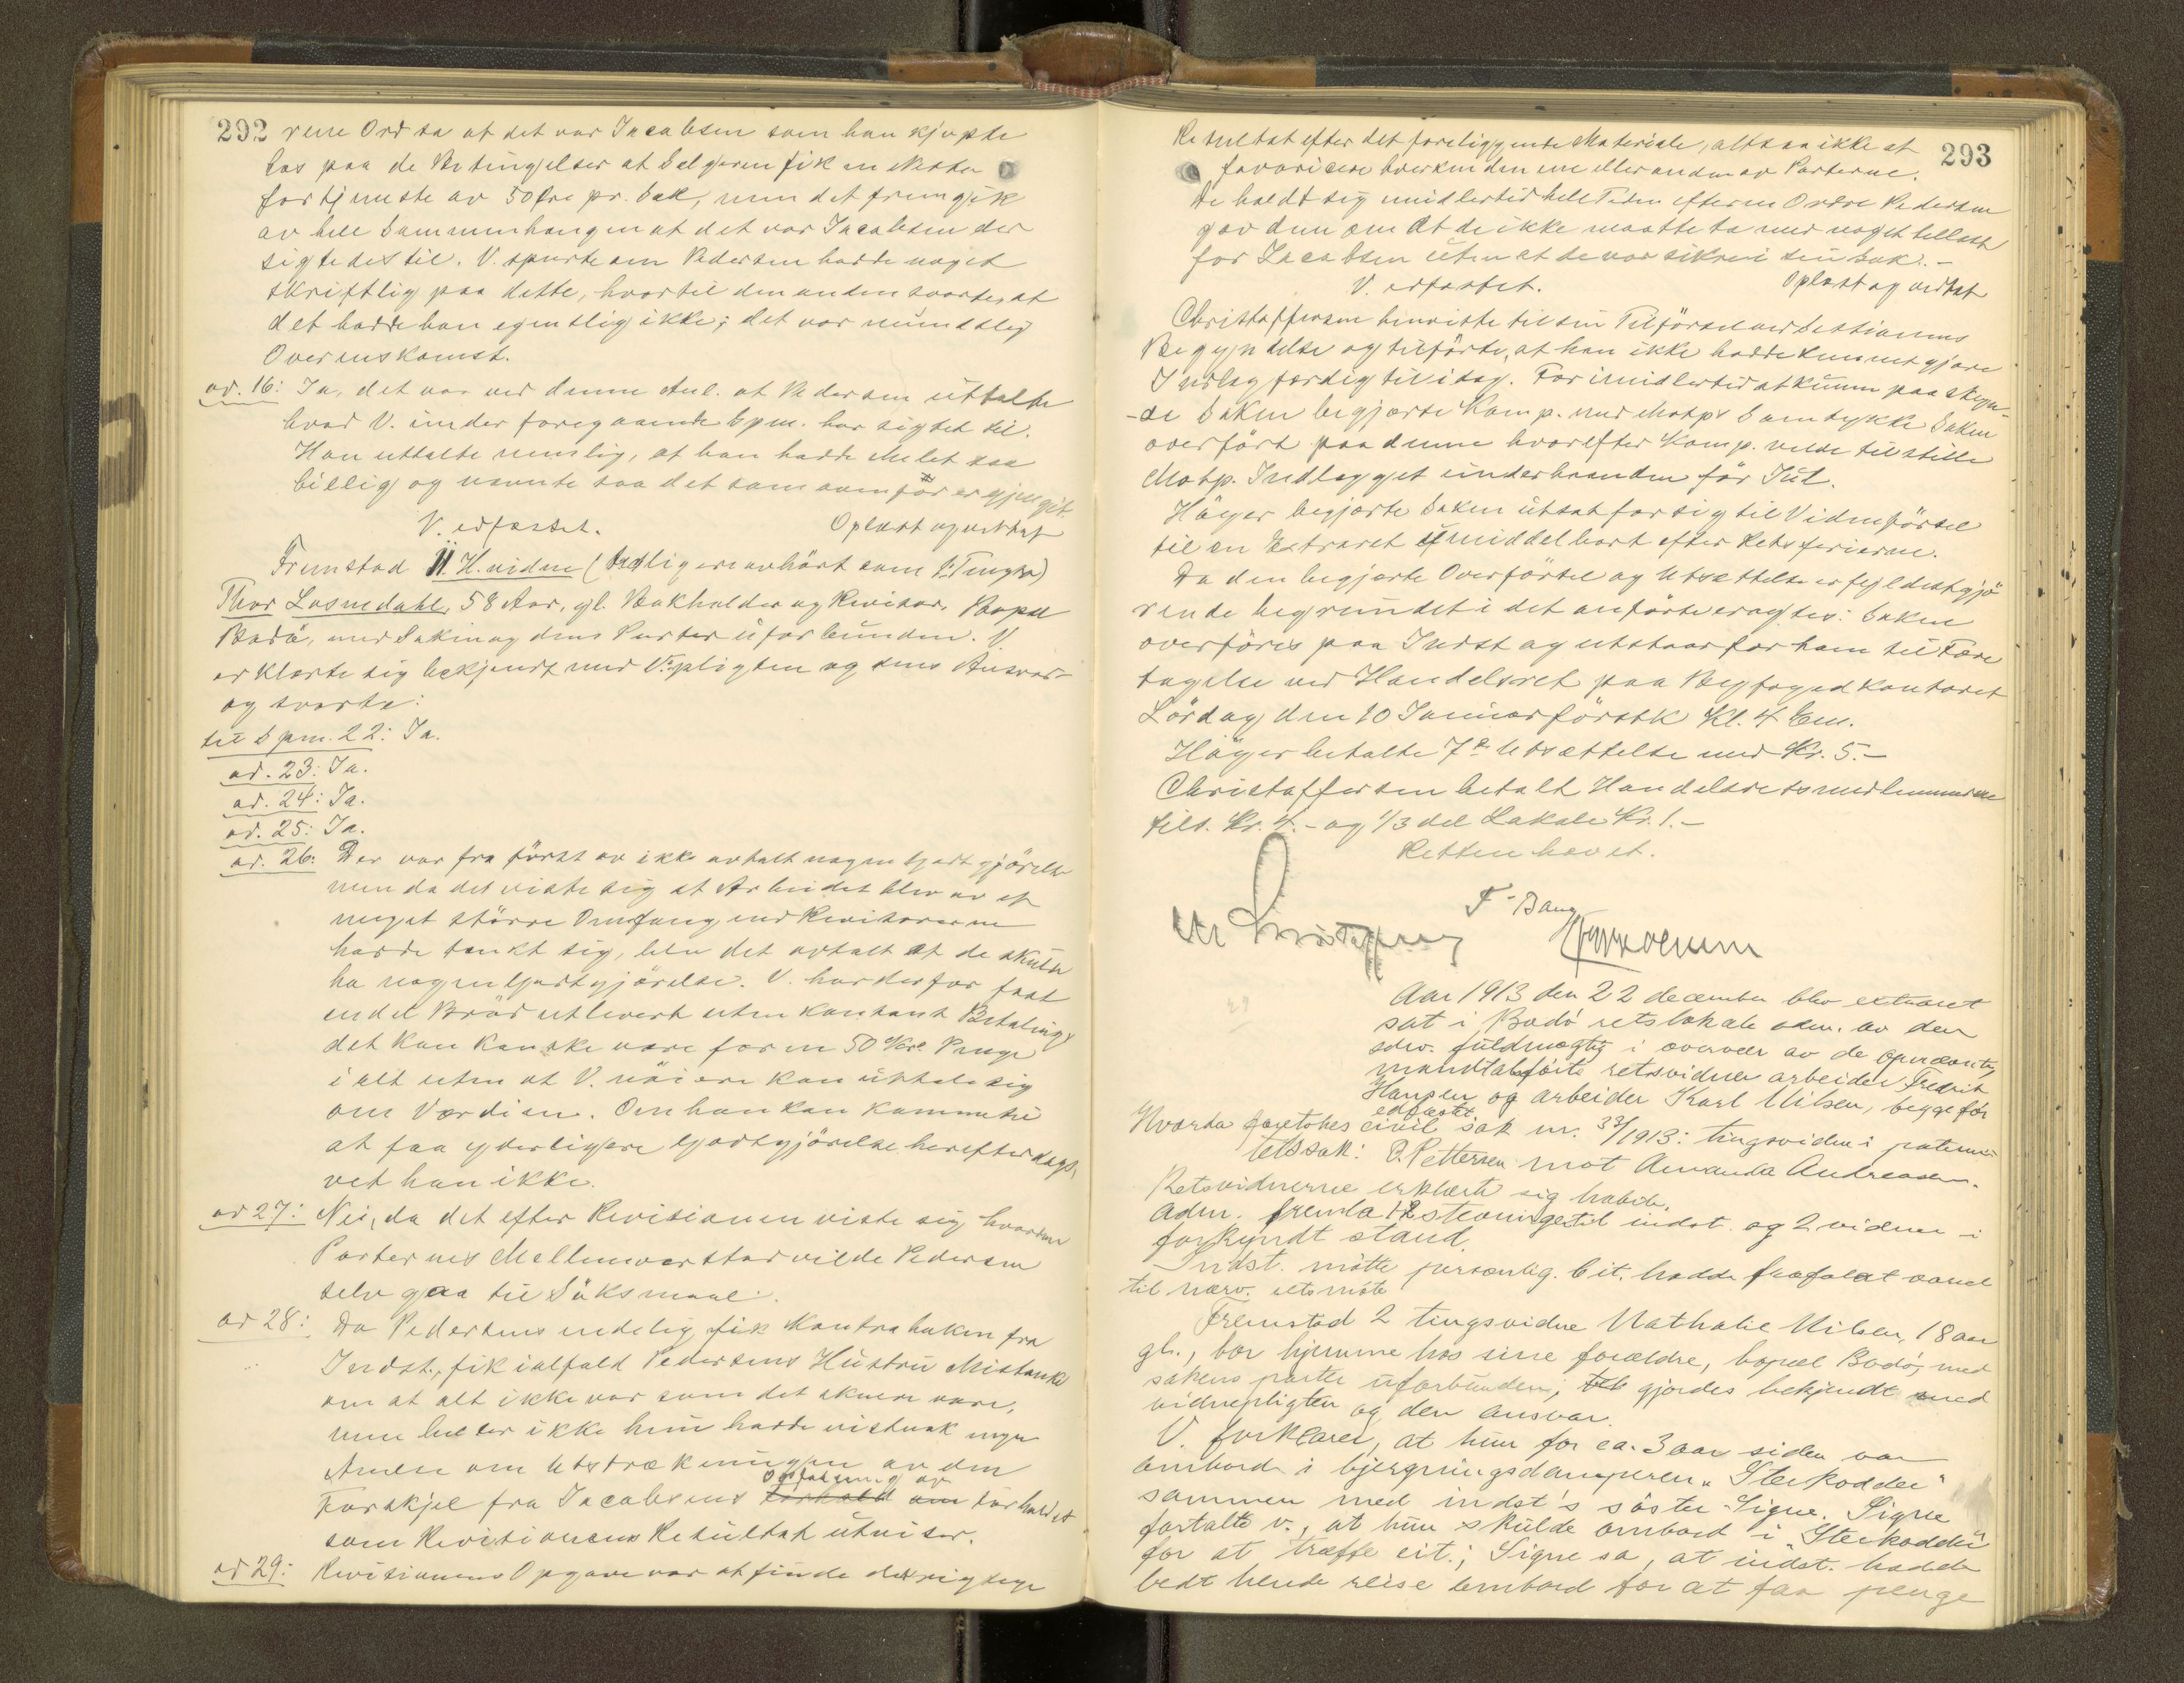 292
rene Ord sa at det var Jacobsen som han kjøpte
hos paa de Betingelser at Selgeren fik en Netto
fortjeneste av 50 Øre pr. Sæk, men det fremgik
av hele Sammenhengen at det var Jacobsen der
sigtedes til. V. spurte om Pedersen hadde noget
skriftlig paa dette, hvortil den anden svarte, at
det hadde han egentlig ikke; det var mundtlig
Overenskomst.
ad. 16: Ja, det var ved denne Anl. at Pedersen uttalte
hvad V. under foregaaende Spm. har sigtet til.
Han uttalte nemlig, at han hadde Melet saa
billig og nævnte saa det som ovenfor er gjengit.
V. edfæstet. Oplæst og vedtat
Fremstod II H. vidne (tidligere avhørt som Tingsv)
Thor Losnedahl, 58 Aar, gl. Bokholder og Revisor, Bopæl
Bodø, med Saken og dens Parter uforbunden. V.
erklærte sig bekjendt med V.pligten og dens Ansvar
og svarte:
til Spm. 22: Ja.
ad. 23: Ja.
ad. 24: Ja.
ad. 25: Ja.
ad. 26: Der var fra først av ikke avtalt nogen Godtgjørelse
men da det viste sig at Arbeidet blev av et
meget større Omfang end Revisorerne
hadde tænkt sig, blev det avtalt at de skulde
ha nogen Godtgjørelse. V. har derfor faat
endel Brød utlevert uten kontant Betaling,
det kan kanske være for en 50 Kr. Penge
i alt uten at V. nøiere kan uttale sig
om Værdien. Om han kan komme til
at faa yderligere Godtgjørelse herefterdags,
vet han ikke.
ad 27: Nei, da det efter Revisionen viste sig hvordan
Parternes Mellemvær stod vilde Pedersen
selv gaa til Søksmaal.
ad 28: Da Pedersens endelig fik Kontraboken fra
Indst., fik ialfald Pedersens Hustru Mistanke
om at alt ikke var som det skulde være,
men heller ikke hun hadde vistnok nogen
Anelse om Utstrækningen av den
Opfatning av
Forskjel fra Jacobsens Forhold om Forholdet
som Revisionens Resultat utviser.
ad 29: Revisionens Opgave var at finde det rigtige
293
Resultat efter det foreliggende Materiale, altsaa ikke at
favorisere hverken den ene eller anden av Parterne.
De holdt sig imidlertid hele Tiden efter en Ordre Pedersen
gav dem om at de ikke maatte ta med noget tillast
for Jacobsen uten at de var sikre i sin Sak.-
V. edfæstet. Oplæst og vedtat
Christoffersen henviste til sin Tilførsel ved Sessionens
Begyndelse og tilførte, at han ikke hadde kunnet gjøre
Indlæg færdig til idag. For imidlertid at kunne paaskyn-
-de Saken begjærte Komp. med Motp's Samtykke Saken
overført paa denne hvorefter Komp. vilde tilstille
Motp. Indlægget underhaanden før Jul.
Høyer begjærte Saken utsat for sig til Vidneførsel
til en Extraret umiddelbart efter Retsferierne.
Da den begjærte Overførsel og Utsættelse er fyldestgjø
rende begrundet i det anførte eragtes: Saken
overføres paa Indst og utstaar for ham til Fore
tagelse ved Handelsret paa Byfogedkontoret
Lørdag den 10 Januar førstk Kl. 4 Em.
Høyer betalte 7de Utsættelse med Kr. 5.-
Christoffersen betalt Handelsretsmedlemmerne
tils. Kr. 4.- og 1/3 del Lokale Kr. 1.-
Retten hævet.
F. Bang
Aar 1913 den 22 december blev extraret
sat i Bodø retslokale adm. av den
edsv. fuldmægtig i overvær av de
mandtalsførte retsvidner arbeider Fredrik
Hansen og arbeider Karl Nilsen, begge før
edfæstet.
Hvorda foretokes civil sak nr. 33/1913: tingsvidne i paterni
tetssak: P. Pettersen mot Amanda Andreasen.
Retsvidnerne erklærte sig habile.
Adm. fremla 12 stevninger til indst. og 2 vidner i
forkyndt stand.
Indst. møtte personlig. Cit. hadde frafaldt varsel
til nærv. retsmøte
Fremstod 2 tingsvidne Nathalie Nilsen, 18 aar
gl., bor hjemme hos sine forældre, bopæl Bodø, med
sakens parter uforbunden; gjordes bekjendt med
vidnepligten og den ansvar.
V. forklarer, at hun for ca. 3 aar siden var
ombord i bjergningsdamperen "Sterkodder"
sammen med indst's søster Signe. Signe
fortalte v., at hun skulde ombord i "Sterkodder"
for at træffe cit.; Signe sa, at indst. hadde
bedt hende reise ombord for at faa penge